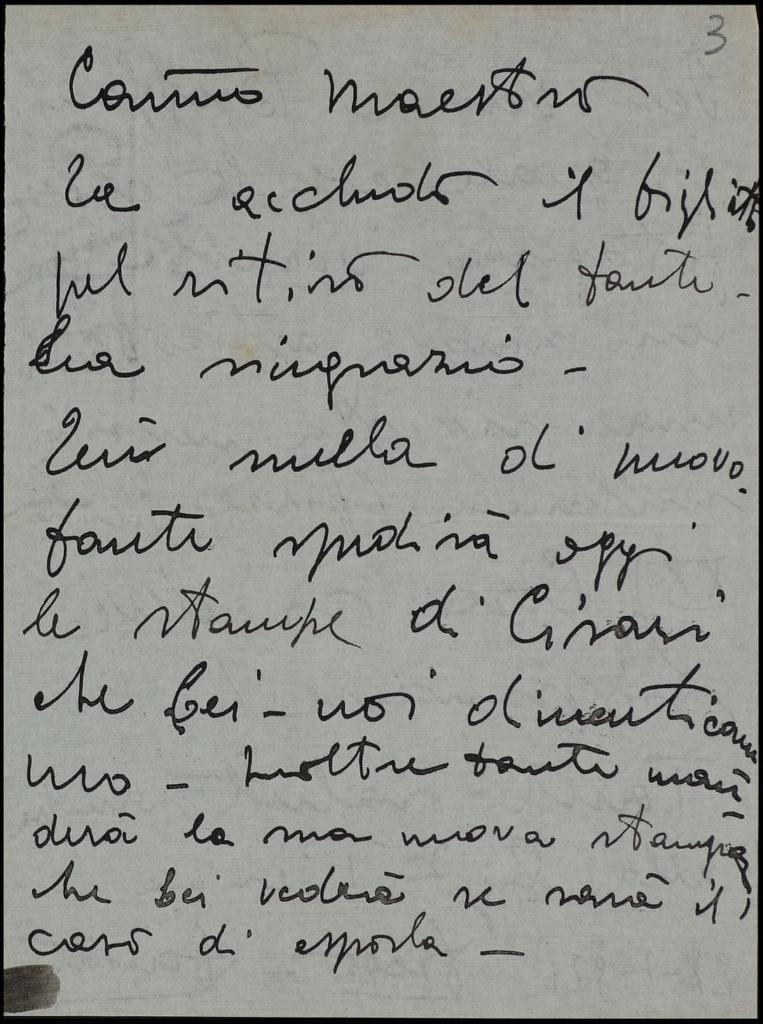 3
Carmo Maestro
Le accludo il biglietto
pel ritiro del
La ringrazio -
nulla di nuovo.
spedirà oggi
le stampe di
che Lei - noi dimentica
mo - Inoltre man
derà la sua nuova stampa
che Lei vedrà se sarà il
caso di esporla -